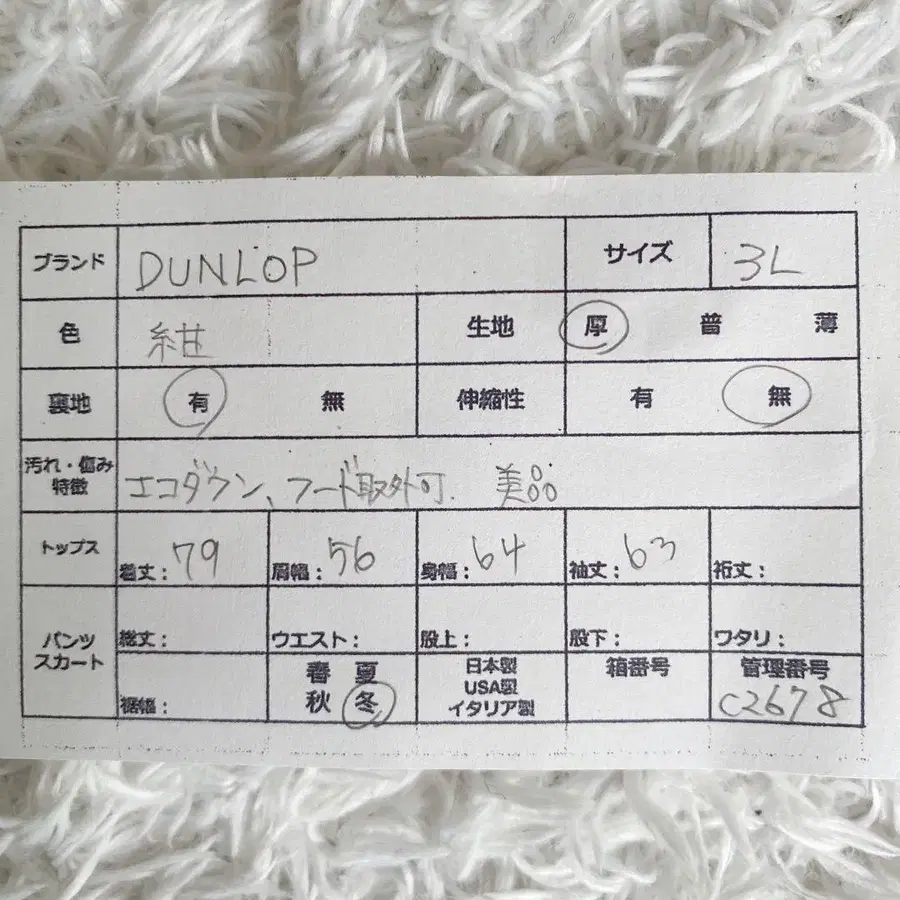 ブランド DUNLOP サイズ 3L
色 紺 生地 厚 普 薄
裏地 有 無 伸縮性 有 無
汚れ・傷み
特徴 エコダウン、フード取外可. 美品
トップス 着丈:79 肩幅:56 身幅:64 袖丈:63 裄丈:
パンツ
スカート
総丈: ウエスト: 股上: 股下: ワタリ:
裾幅:
春 夏
秋 冬
日本製
USA製
イタリア製
箱番号
管理番号
C2678